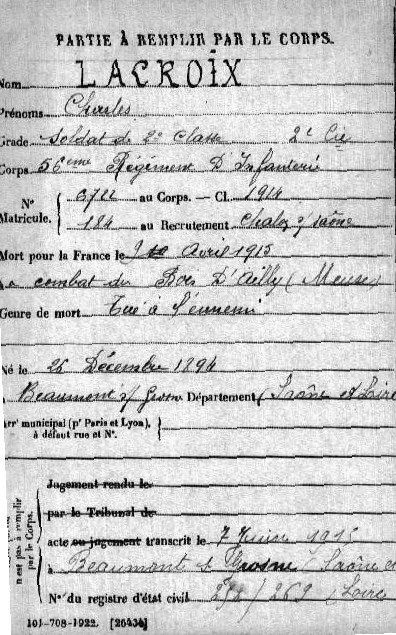 PARTIE À REMPLIR PAR LE CORPS.
Nom LACROIX
Prénoms Charles
Grade Soldat de 2e Classe 2e Cie
Corps 56eme Régiment D'Infanterie
N° Matricule. { 6722 au Corps. — Cl. 1914
184 au Recrutement Chalon s/ Saône
Mort pour la France le Avril 1915
combat du Bois D'Ailly (Meuse)
Genre de mort Tué à l'ennemi
Né le 26 Décembre 1894
Beaumont s/ Grosne Département (Saône et Loire
arr' municipal (pr Paris et Lyon), à défaut rue et N°. }
n'est pas à remplir par le Corps.
Jugement rendu le
par le Tribunal de
acte ou jugement transcrit le 7 Juin 1915
à Beaumont s/ Grosne (Saône et
N° du registre d'état civil / 269 (Loire
101-708-1922. [26434]